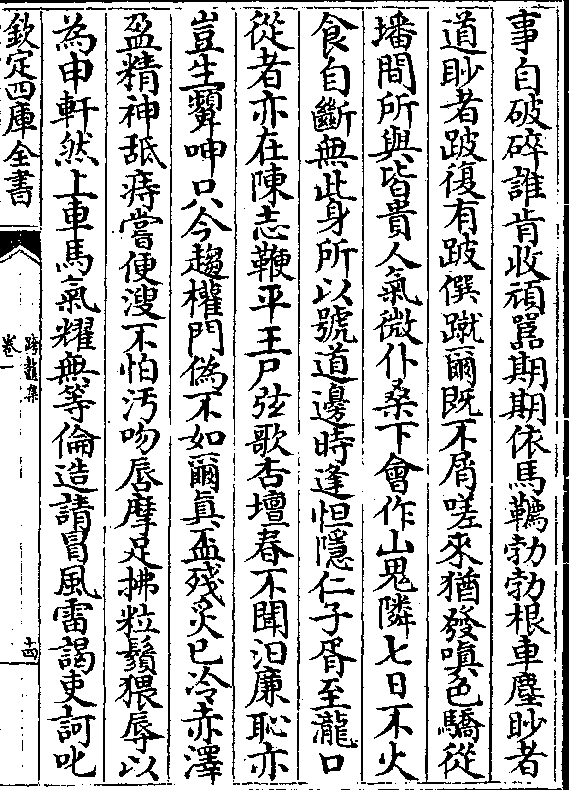 事自破碎誰肯收頑嚚期期依馬韉勃勃根車塵眇者
道眇者跛復有跛僎蹴爾既不屑嗟來猶發嗔色驕從
墦間所與皆貴人氣微仆桑下會作山鬼隣七日不火
食自斷無此身所以號道邊時逢怛隱仁子胥至瀧口
從者亦在陳志鞭平王尸弦歌杏壇春不聞汨廉恥亦
豈生顰呻只今趨權門偽不如爾真盃殘炙已冷赤澤
盈精神䑛痔嘗便溲不怕汚吻唇摩足拂粒鬚猥辱以
為申軒然上車馬氣耀無等倫造請冒風雷謁吏訶叱
欽定四庫全書
卷一
十四